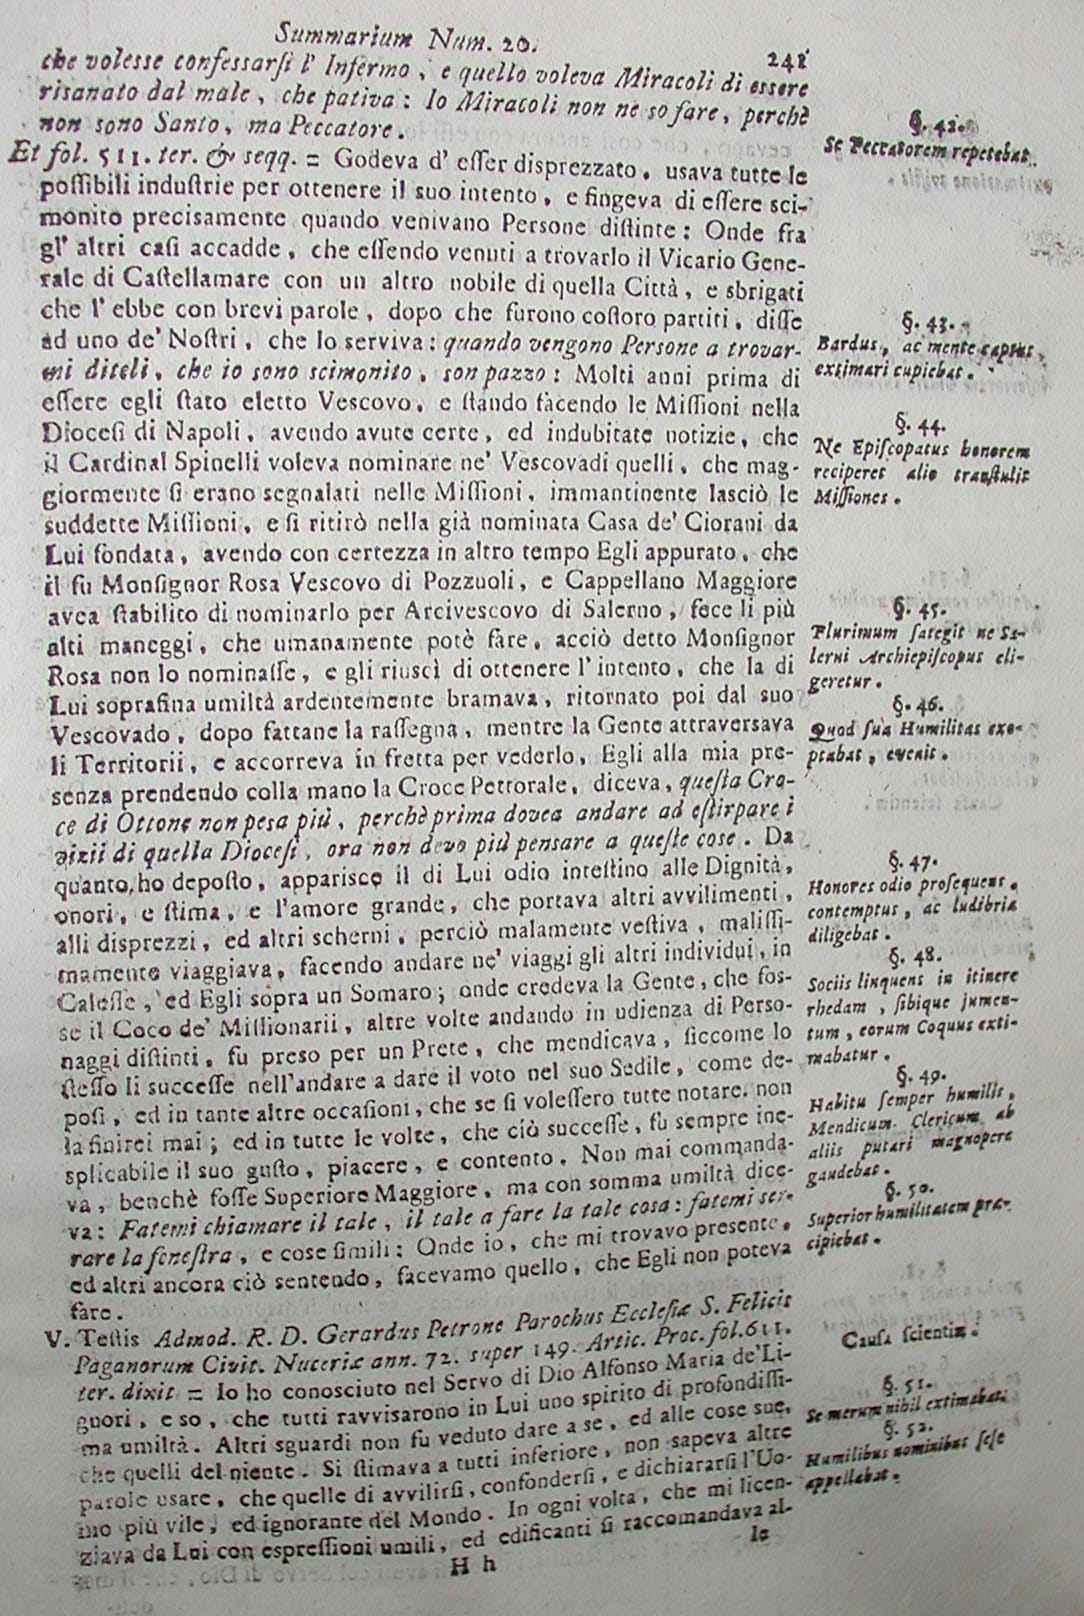 Summarium Num. 20.
241
che volesse confessarsi l' Infermo, e quello voleva Miracoli di essere
risanato dal male, che pativa: Io Miracoli non ne so fare, perchè
non sono Santo, ma Peccatore.
Et fol. 511. ter. & seqq. = Godeva d' esser disprezzato, usava tutte le
possibili industrie per ottenere il suo intento, e fingeva di essere sci-
monito precisamente quando venivano Persone distinte: Onde fra
gl' altri casi accadde, che essendo venuti a trovarlo il Vicario Gene-
rale di Castellamare con un altro nobile di quella Città, e sbrigati
che l' ebbe con brevi parole, dopo che furono costoro partiti, disse
ad uno de' Nostri, che lo serviva: quando vengono Persone a trovar-
mi diteli, che io sono scimonito, son pazzo: Molti anni prima di
essere egli stato eletto Vescovo, e stando facendo le Missioni nella
Diocesi di Napoli, avendo avute certe, ed indubitate notizie, che
il Cardinal Spinelli voleva nominare ne' Vescovadi quelli, che mag-
giormente si erano segnalati nelle Missioni, immantinente lasciò le
suddette Missioni, e si ritirò nella già nominata Casa de' Ciorani da
Lui fondata, avendo con certezza in altro tempo Egli appurato, che
il fù Monsignor Rosa Vescovo di Pozzuoli, e Cappellano Maggiore
avea stabilito di nominarlo per Arcivescovo di Salerno, fece li più
alti maneggi, che umanamente potè fare, acciò detto Monsignor
Rosa non lo nominasse, e gli riuscì di ottenere l' intento, che la di
Lui soprafina umiltà ardentemente bramava, ritornato poi dal suo
Vescovado, dopo fattane la rassegna, mentre la Gente attraversava
li Territorii, e accorreva in fretta per vederlo, Egli alla mia pre-
senza prendendo colla mano la Croce Pettorale, diceva, questa Cro-
ce di Ottone non pesa più, perchè prima dovea andare ad estirpare i
vizii di quella Diocesi, ora non devo più pensare a queste cose. Da
quanto, ho deposto, apparisce il di Lui odio intestino alle Dignità,
onori, e stima, e l'amore grande, che portava altri avvilimenti,
alli disprezzi, ed altri scherni, perciò malamente vestiva, malissi-
mamente viaggiava, facendo andare ne' viaggi gli altri individui, in
Calesse, ed Egli sopra un Somaro; onde credeva la Gente, che fos-
se il Coco de' Missionarii, altre volte andando in udienza di Perso-
naggi distinti, fu preso per un Prete, che mendicava, siccome lo
stesso li successe nell'andare a dare il voto nel suo Sedile, come de-
posi, ed in tante altre occasioni, che se si volessero tutte notare, non
la finirei mai; ed in tutte le volte, che ciò successe, fu sempre ine-
splicabile il suo gusto, piacere, e contento. Non mai commanda-
va, benchè fosse Superiore Maggiore, ma con somma umiltà dice-
va: Fatemi chiamare il tale, il tale a fare la tale cosa: fatemi ser-
rare la fenestra, e cose simili: Onde io, che mi trovavo presente,
ed altri ancora ciò sentendo, facevamo quello, che Egli non poteva
fare.
V. Testis Admod. R. D. Gerardus Petrone Parochus Ecclesiæ S. Felicis
Paganorum Civit. Nuceriæ ann. 72. super 149. Artic. Proc. fol. 611.
ter. dixit = Io ho conosciuto nel Servo di Dio Alfonso Maria de' Li-
guori, e so, che tutti ravvisarono in Lui uno spirito di profondissi-
ma umiltà. Altri sguardi non fu veduto dare a se, ed alle cose sue,
che quelli del niente. Si stimava a tutti inferiore, non sapeva altre
parole usare, che quelle di avvilirsi, confondersi, e dichiararsi l'Uo-
mo più vile, ed ignorante del Mondo. In ogni volta, che mi licen-
ziava da Lui con espressioni umili, ed edificanti si raccomandava al-
le
H h
§. 42.
Se Peccatorem repetebat.
§. 43.
Bardus, ac mente captus,
extimari cupiebat.
§. 44.
Ne Episcopatus honorem
reciperet alio transtulit
Missiones.
§. 45.
Plurimum sategit ne Sa-
lerni Archiepiscopus eli-
geretur.
§. 46.
Quod sua Humilitas exo-
ptabat, evenit.
§. 47.
Honores odio prosequens,
contemptus, ac ludibria
diligebat.
§. 48.
Sociis linquens in itinere
rhedam, sibique jumen-
tum, eorum Coquus exti-
mabatur.
§. 49.
Habitu semper humilis,
Mendicum Clericum ab
aliis putari magnopere
gaudebat.
§. 50.
Superior humilitatem præ-
cipiebat.
Causa scientiæ.
§. 51.
Se merum nihil extimabat.
§. 52.
Humilibus nominibus sese
appellabat.